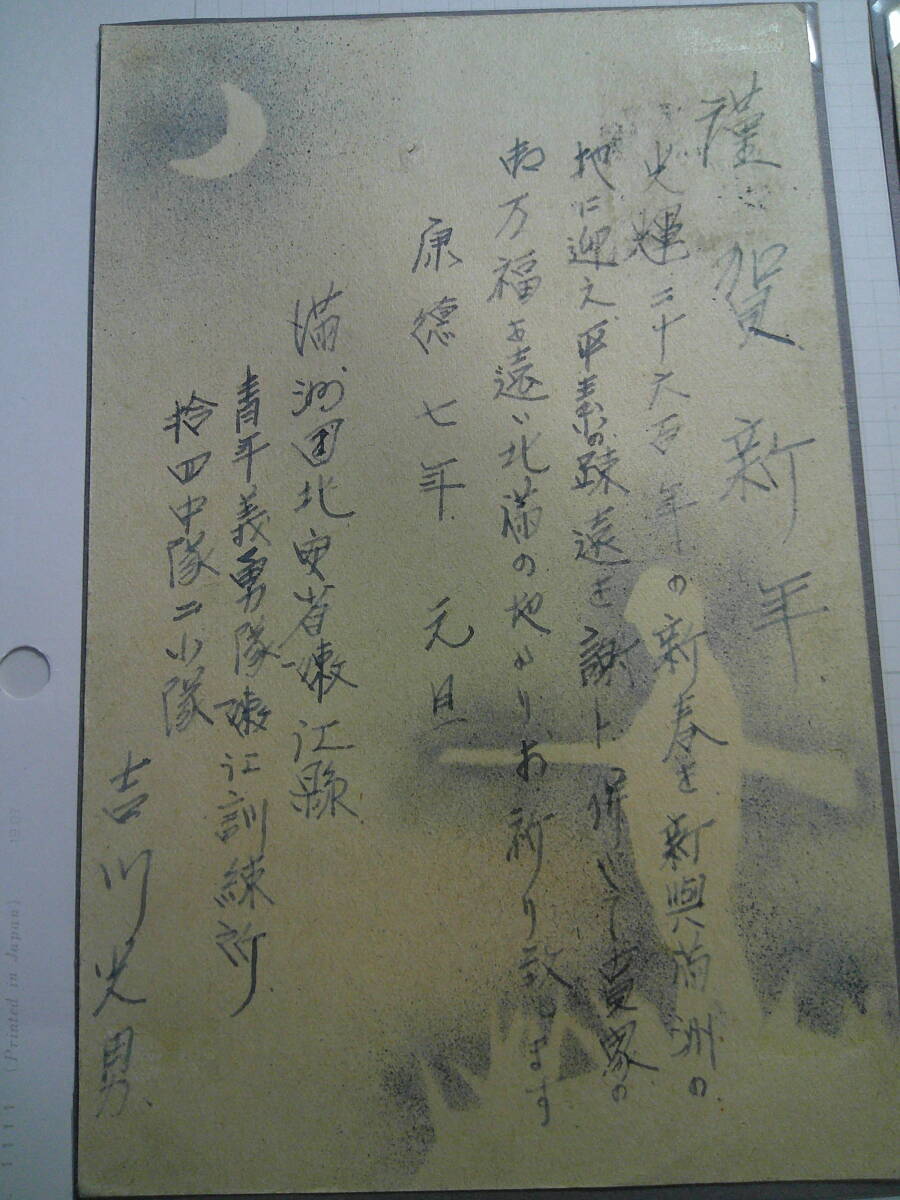 謹賀新年
光輝二千六百年の新春を新興満洲の
地に迎え平素の疎遠を謝し併して貴家の
御万福を遠い北満の地よりお祈り致します
康徳七年 元旦
満洲国北安省嫩江縣
青年義勇隊嫩江訓練所
拾四中隊二小隊
吉川光男
(Printed in Japan)
1111